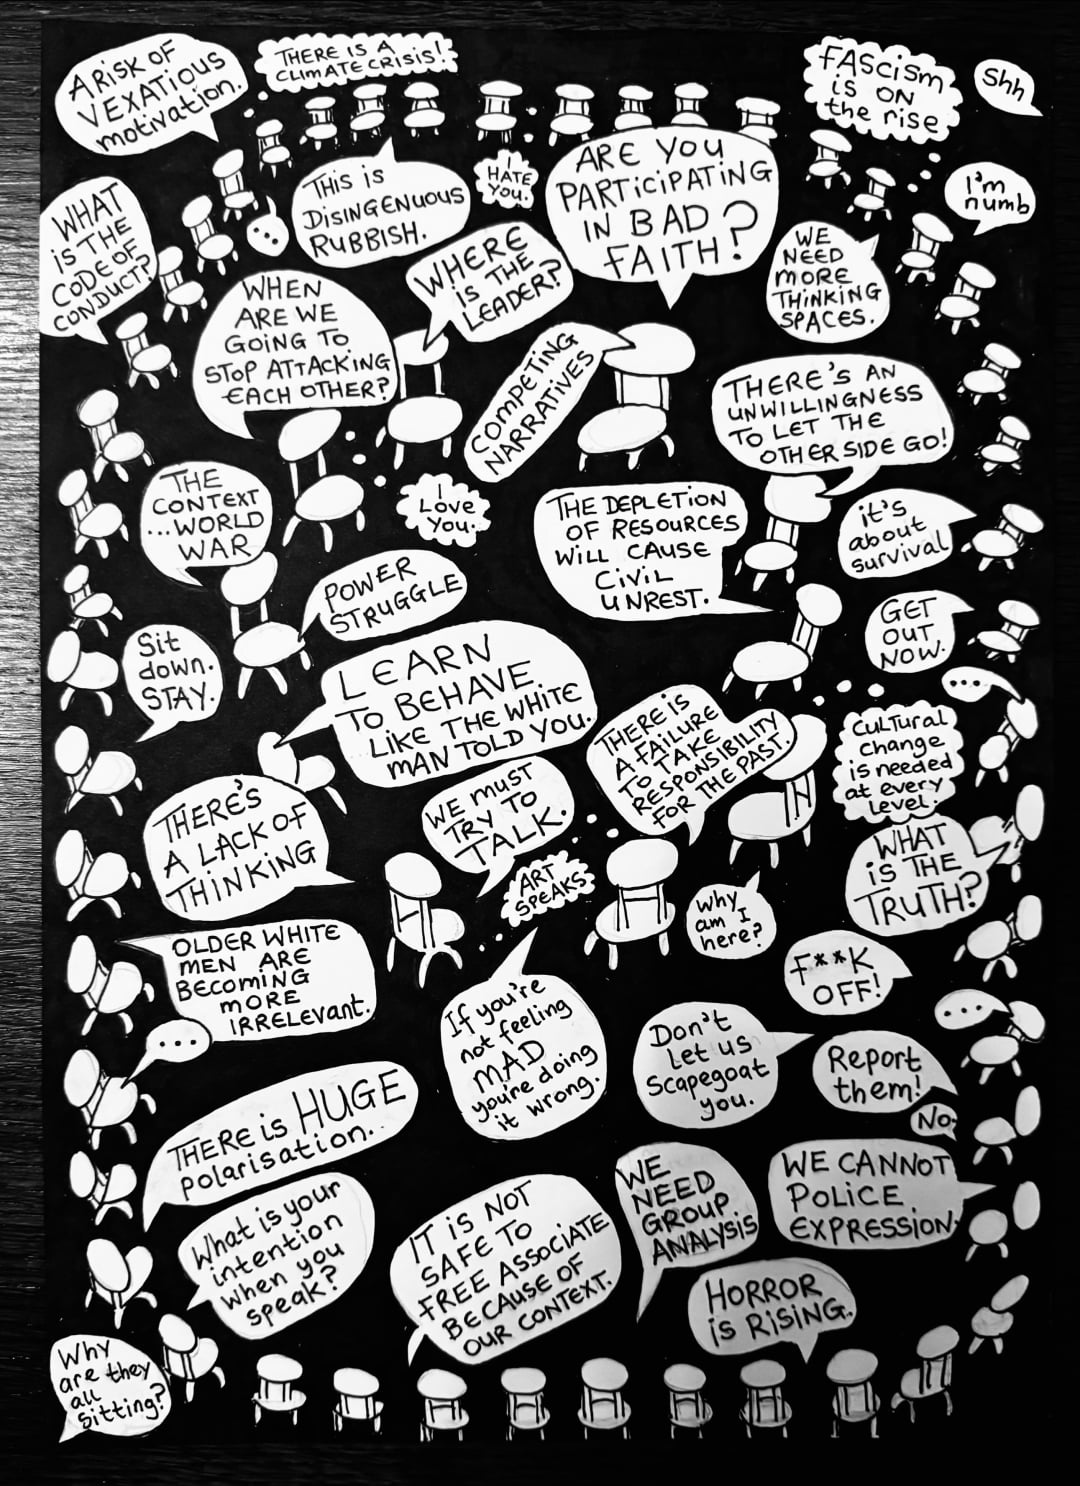 A RISK OF
VEXATIOUS
motivation.
THERE IS A
CLIMATE CRISIS!
FASCISM
is ON
the rise
Shh
WHAT
IS THE
CODE OF
CONDUCT?
THIS IS
DISINGENUOUS
RUBBISH.
I
HATE
YOU.
ARE YOU
PARTICIPATING
IN BAD
FAITH?
I'm
numb
WHEN
ARE WE
GOING TO
STOP ATTACKING
EACH OTHER?
WHERE
IS THE
LEADER?
WE
NEED
MORE
THINKING
SPACES.
COMPETING
NARRATIVES
THERE'S AN
UNWILLINGNESS
TO LET THE
OTHER SIDE GO!
THE
CONTEXT
...WORLD
WAR
I
LOVE
YOU.
THE DEPLETION
OF RESOURCES
WILL CAUSE
CIVIL
UNREST.
it's
about
survival
POWER
STRUGGLE
GET
OUT
NOW.
Sit
down.
STAY.
LEARN
TO BEHAVE
LIKE THE WHITE
MAN TOLD YOU.
THERE IS
A FAILURE
TO TAKE
RESPONSIBILITY
FOR THE PAST.
...
CULTURAL
change
is needed
at every
level.
THERE'S
A LACK OF
THINKING
WE MUST
TRY TO
TALK.
ART
SPEAKS
WHAT
iS THE
TRUTH?
Why
am I
here?
OLDER WHITE
MEN ARE
BECOMING
MORE
IRRELEVANT.
...
F**K
OFF!
If you're
not feeling
MAD
you're doing
it wrong.
Don't
let us
Scapegoat
you.
...
Report
them!
No.
THERE is HUGE
polarisation.
What is your
intention
when you
speak?
IT IS NOT
SAFE TO
FREE ASSOCIATE
BECAUSE OF
OUR CONTEXT.
WE
NEED
GROUP
ANALYSIS
WE CANNOT
POLICE
EXPRESSION.
HORROR
iS RISING.
Why
are they
all
sitting?